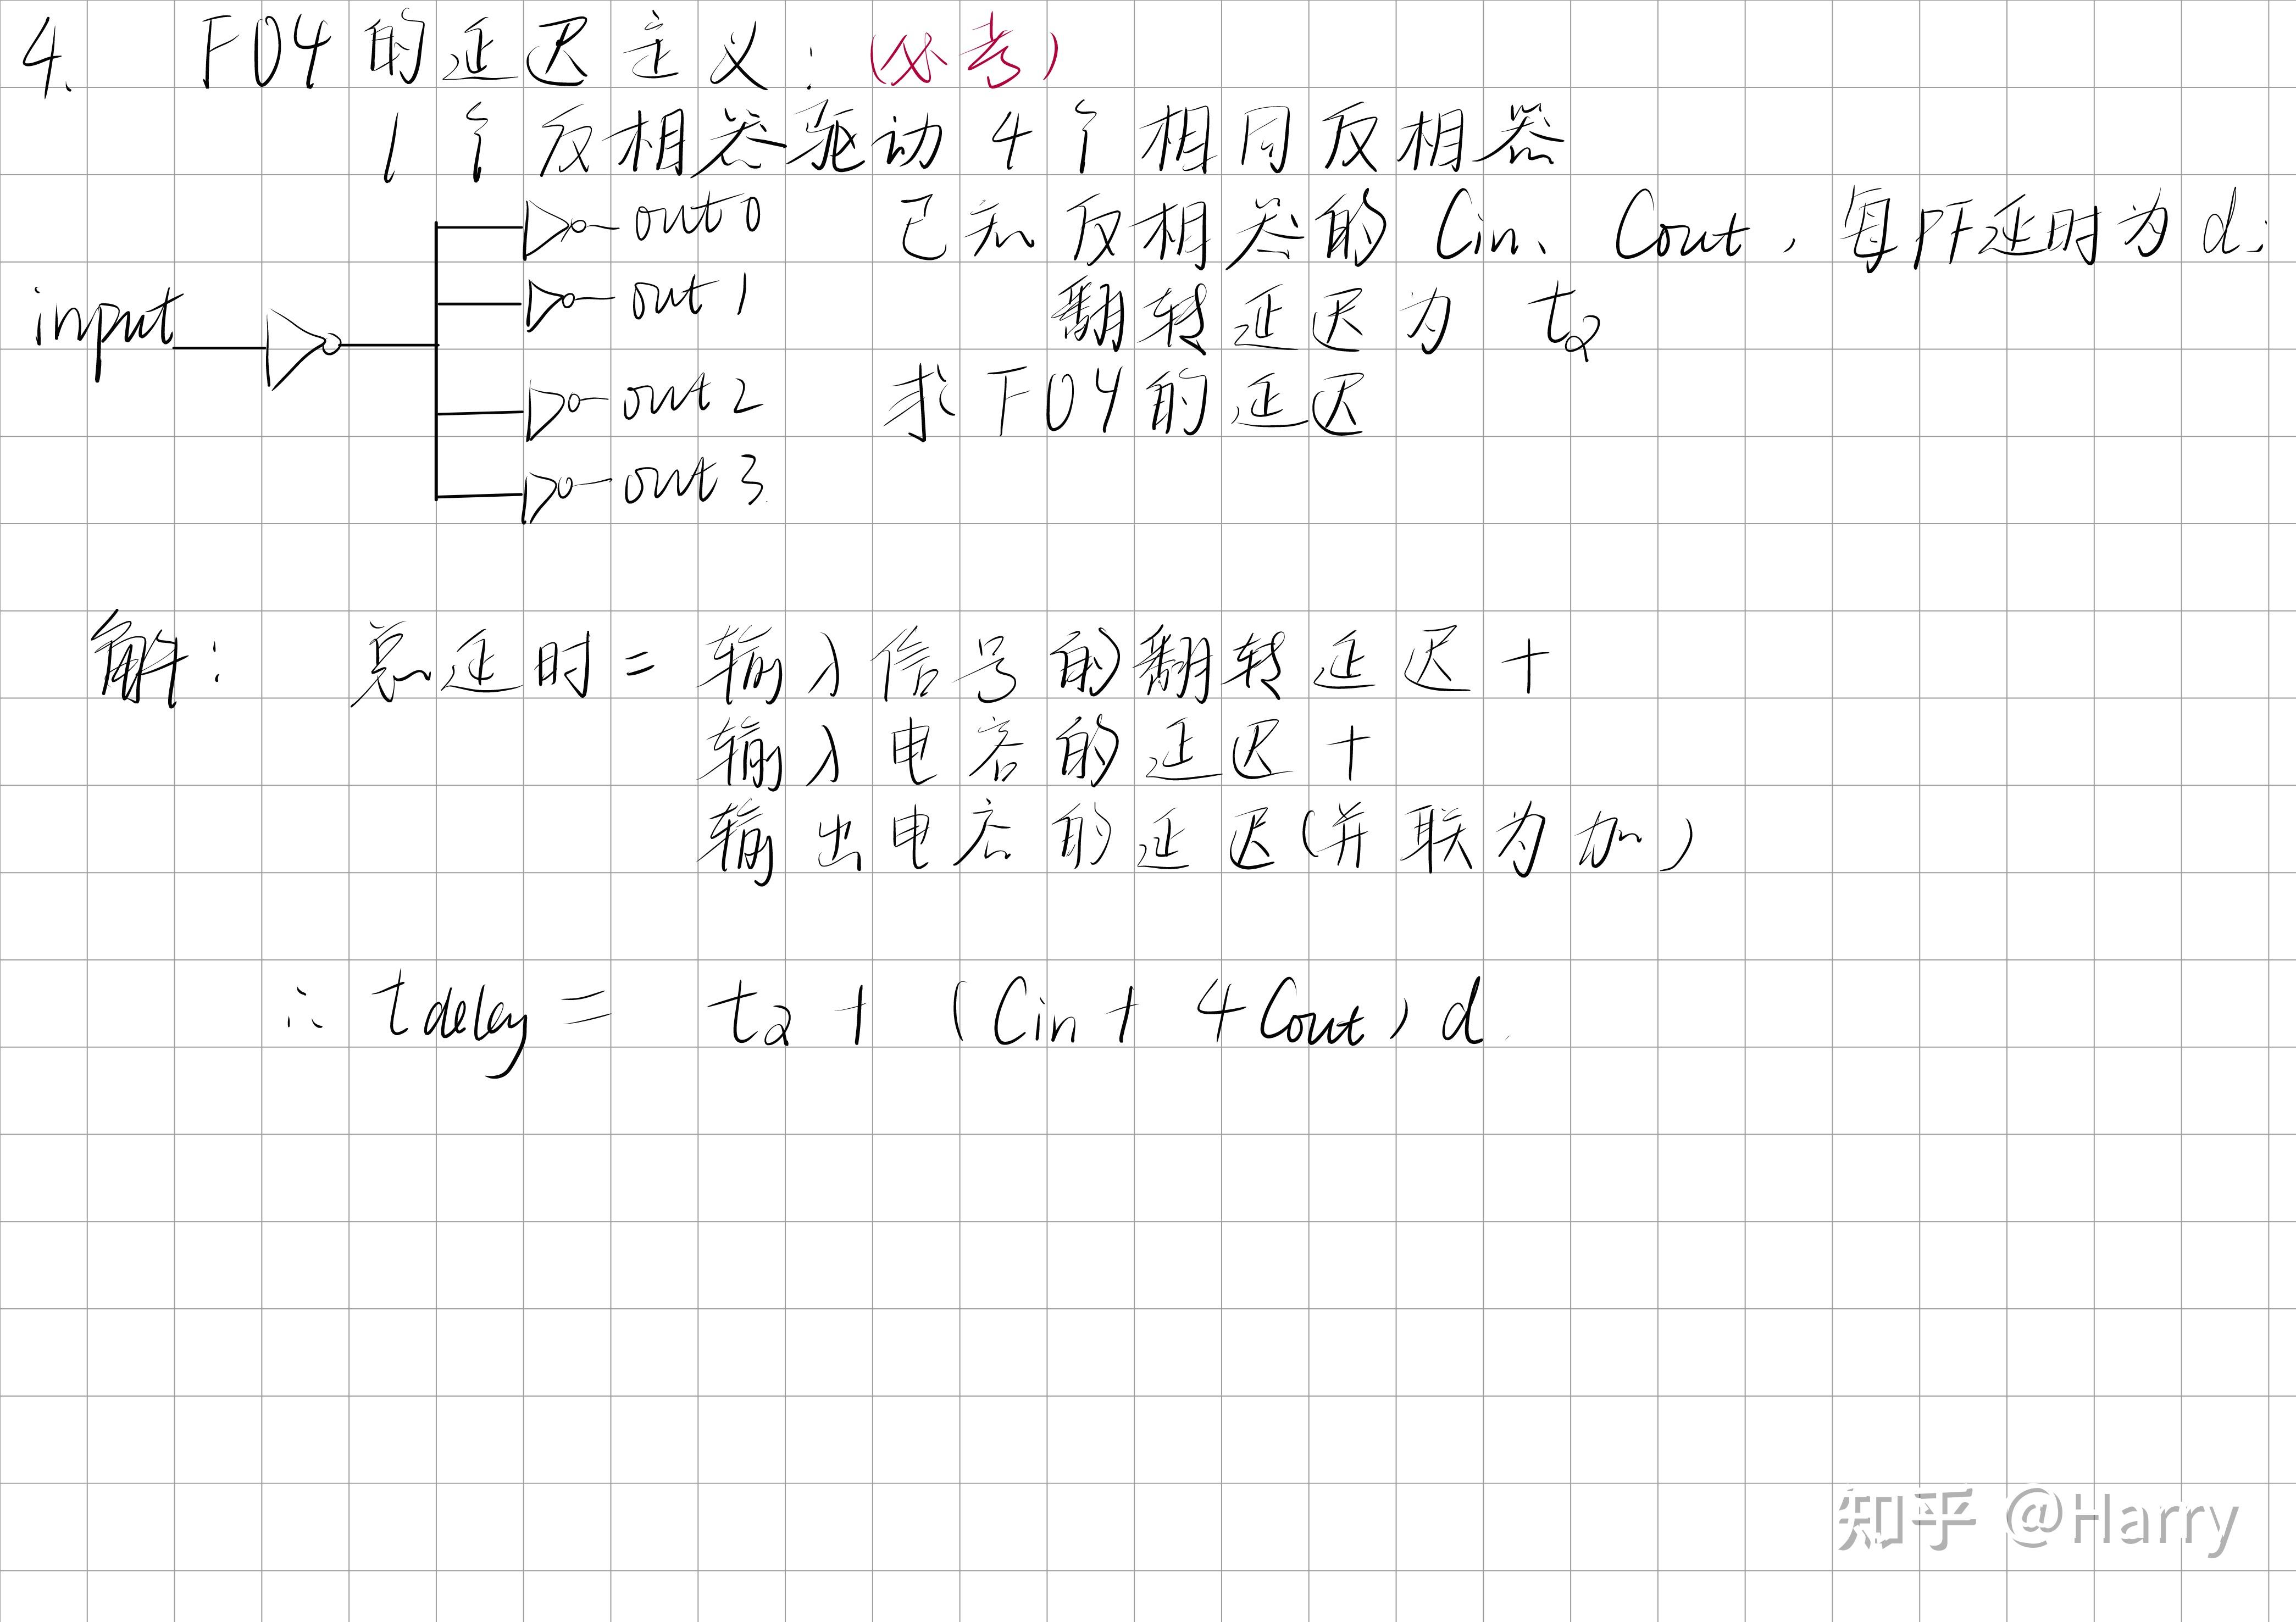 4. FO4的延迟定义:(必考)
1个反相器驱动4个相同反相器
out0 已知反相器的Cin、Cout,每PF延时为d.
out1 翻转延迟为 t2
input
out2 求FO4的延迟
out3.
解: 总延时=输入信号的翻转延迟+
输入电容的延迟+
输出电容的延迟(并联为加)
∴ tdelay= t2+(Cin+4Cout)d.
知乎 @Harry